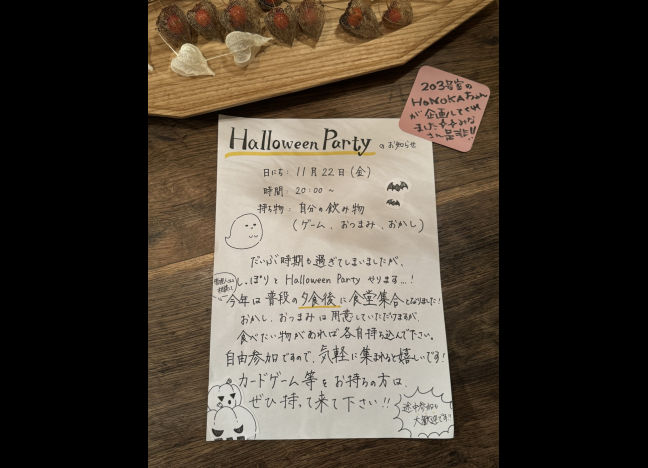 203号室の
HONOKAちゃん
が企画してくれ
ました!みな
さん是非!!
Halloween Party のお知らせ
日にち: 11月22日(金)
時間: 20:00〜
持ち物: 自分の飲み物
(ゲーム、おつまみ、おかし)
だいぶ時期も過ぎてしまいましたが、
しっぽりと Halloween Party やります…!
今年は普段の夕食後に食堂集合となりました!
おかし、おつまみは用意していただけますが、
食べたい物があれば各自持ち込んで下さい。
自由参加ですので、気軽に集まれると嬉しいです!
カードゲーム等をお持ちの方は、
ぜひ持って来て下さい!!
途中参加も
大歓迎です!!